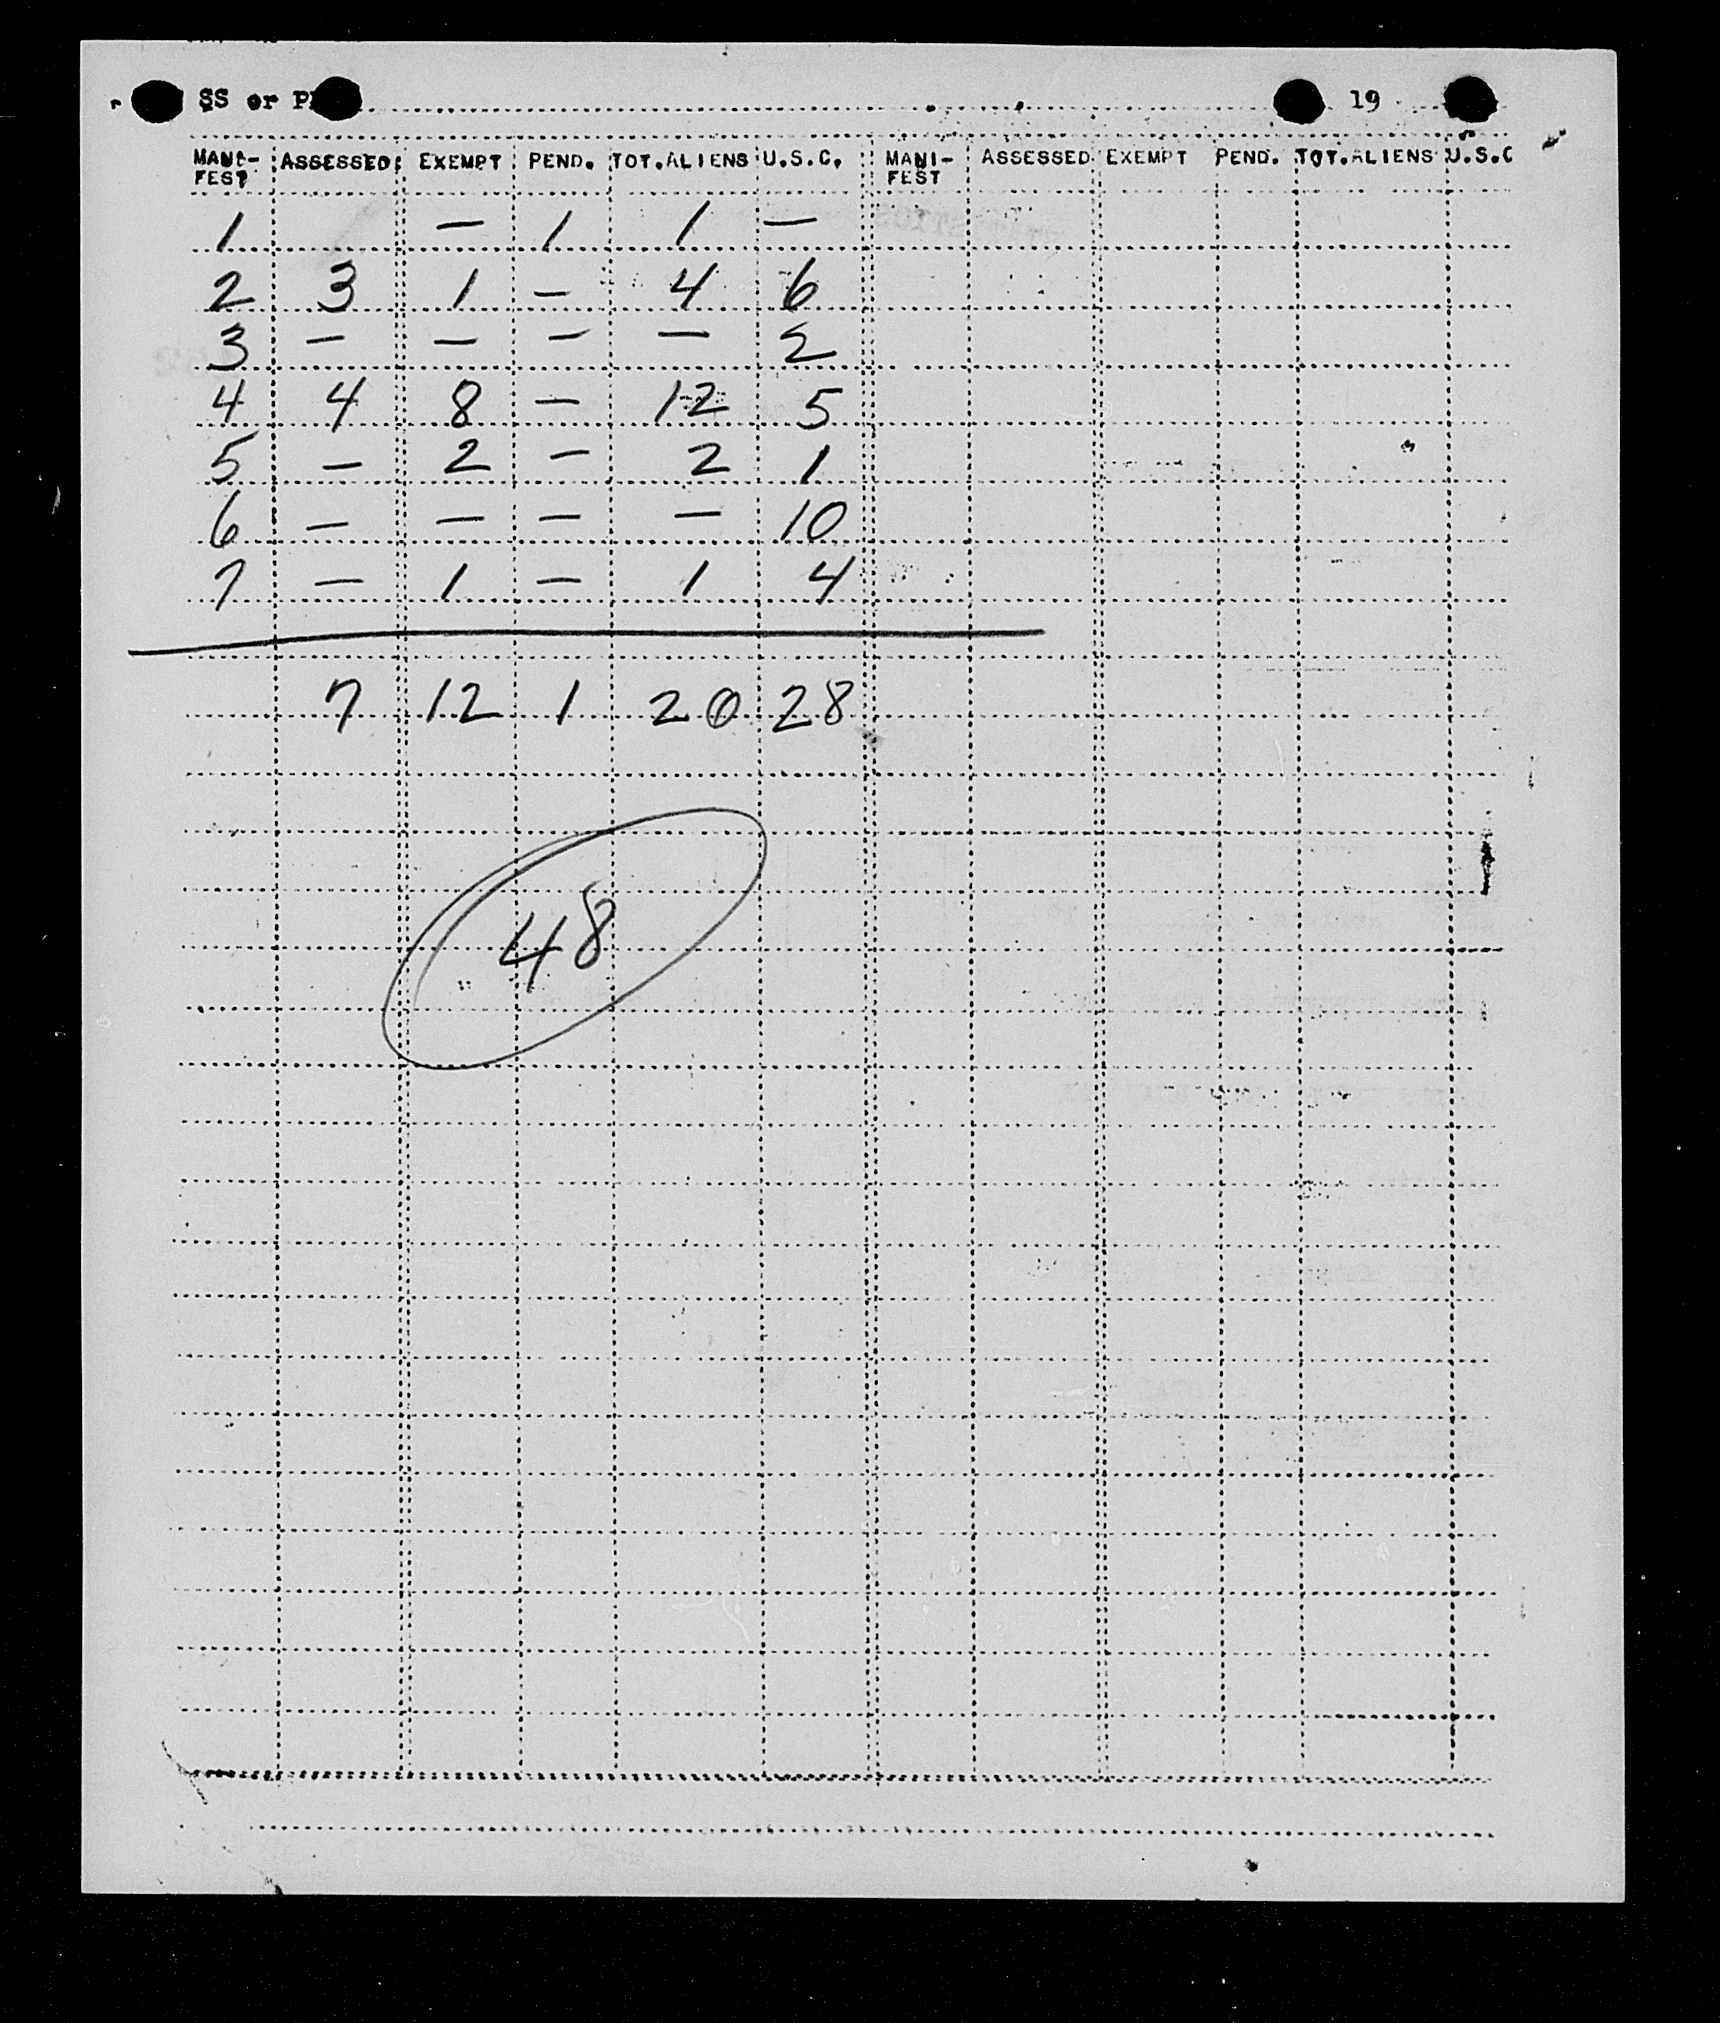 SS or 19
MANI- ASSESSED EXEMPT PEND. TOT.ALIENS U.S.C. MANI- ASSESSED EXEMPT PEND. TOT.ALIENS U.S.C
FEST FEST
1 — 1 1 —
2 3 1 — 4 6
3 — — — — 2
4 4 8 — 12 5
5 — 2 — 2 1
6 — — — — 10
7 — 1 — 1 4
7 12 1 20 28
48